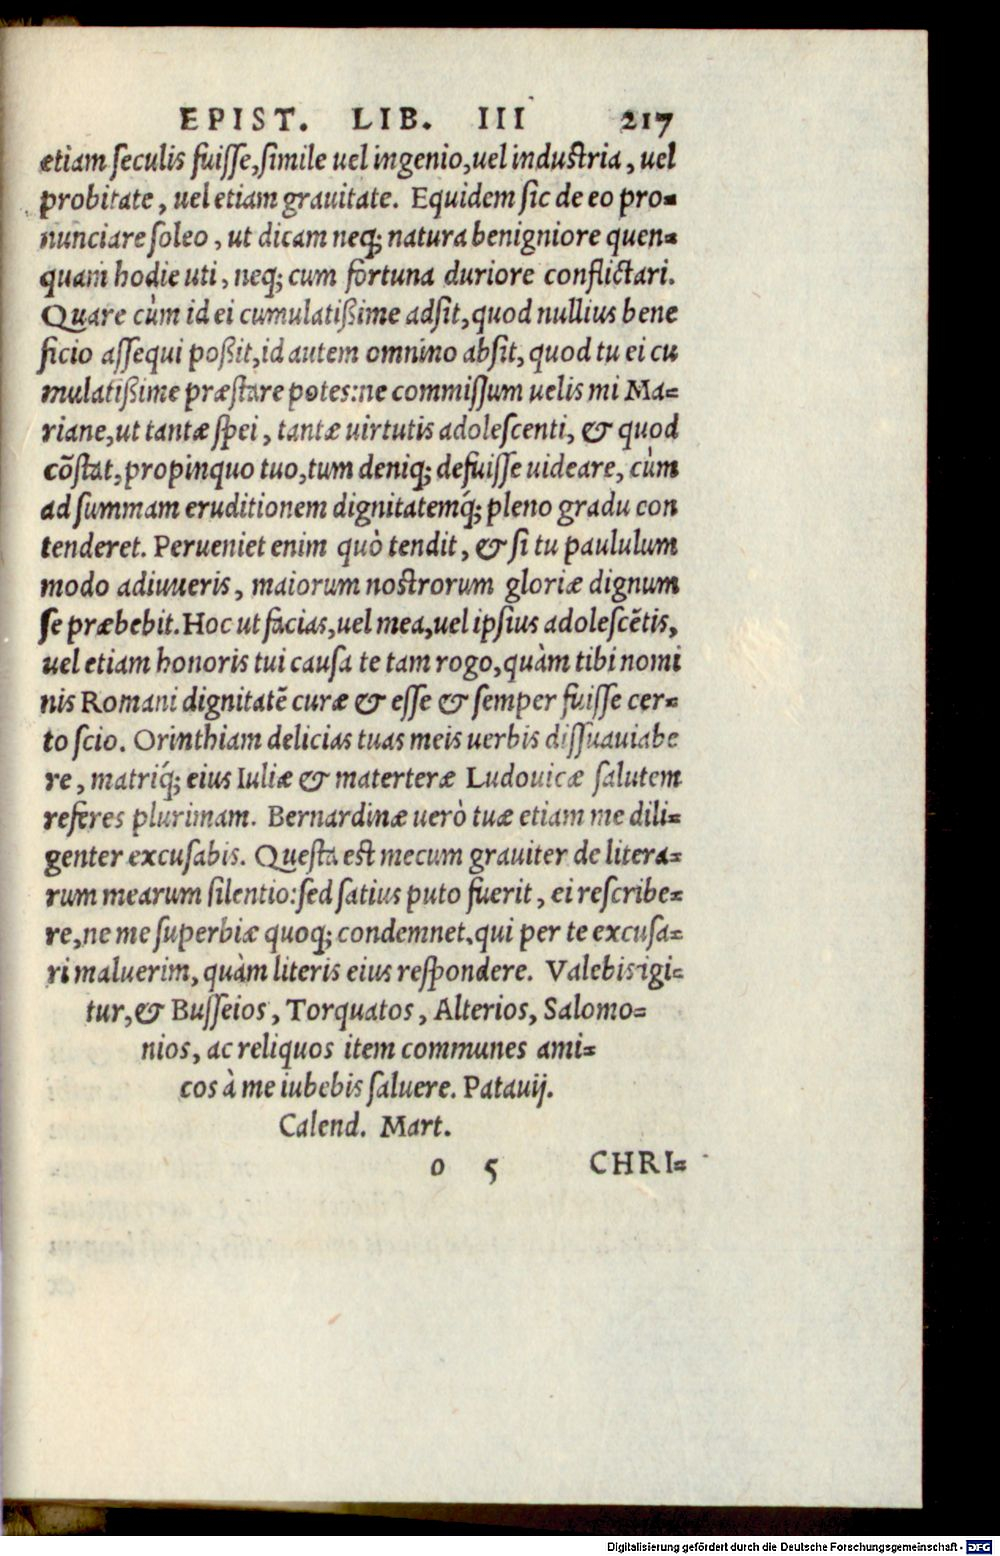 EPIST. LIB. III 217
etiam seculis fuisse, simile uel ingenio, uel industria, uel
probitate, uel etiam grauitate. Equidem sic de eo pro=
nunciare soleo, ut dicam neq; natura benigniore quen=
quam hodie uti, neq; cum fortuna duriore conflictari.
Quare cùm id ei cumulatißime adsit, quod nullius bene
ficio assequi poßit, id autem omnino absit, quod tu ei cu
mulatißime præstare potes: ne commissum uelis mi Ma=
riane, ut tantæ spei, tantæ uirtutis adolescenti, & quod
cõstat, propinquo tuo, tum deniq; defuisse uideare, cùm
ad summam eruditionem dignitatemq́; pleno gradu con
tenderet. Perueniet enim quò tendit, & si tu paululum
modo adiuueris, maiorum nostrorum gloriæ dignum
se præbebit. Hoc ut facias, uel mea, uel ipsius adolescẽtis,
uel etiam honoris tui causa te tam rogo, quàm tibi nomi
nis Romani dignitatẽ curæ & esse & semper fuisse cer=
to scio. Orinthiam delicias tuas meis uerbis dissuauiabe
re, matriq́; eius Iuliæ & materteræ Ludouicæ salutem
referes plurimam. Bernardinæ uerò tuæ etiam me dili=
genter excusabis. Questa est mecum grauiter de litera=
rum mearum silentio: sed satius puto fuerit, ei rescribe=
re, ne me superbiæ quoq; condemnet, qui per te excusa=
ri maluerim, quàm literis eius respondere. Valebis igi=
tur, & Busseios, Torquatos, Alterios, Salomo=
nios, ac reliquos item communes ami=
cos à me iubebis saluere. Patauij.
Calend. Mart.
o 5 CHRI=
Digitalisierung gefördert durch die Deutsche Forschungsgemeinschaft - DFG